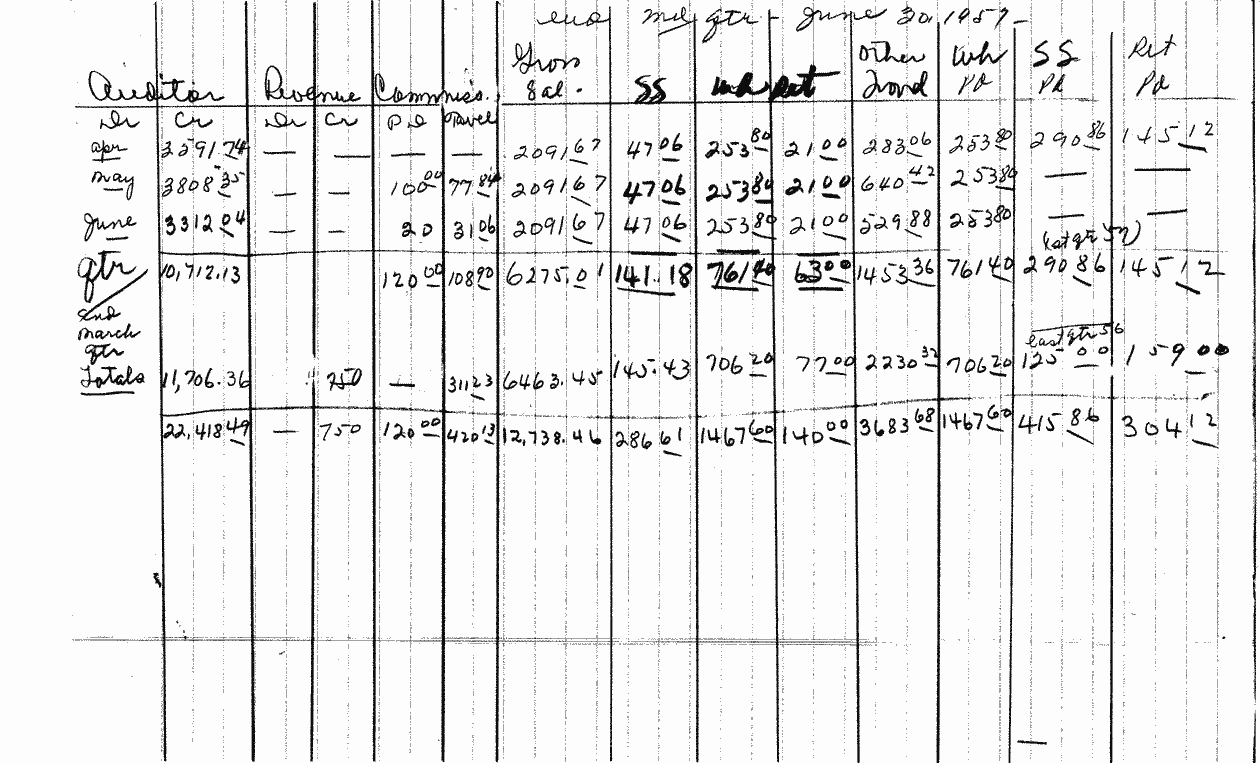 end qtr - June 30, 1957 -
Gross Other Wh SS Ret
Auditor Revenue Commiss. Sal. SS Wh Ret Pd Pd Pd
Dr Cr Dr Cr Pd Travel
Apr 3591 74 — — — — 2091 67 47 06 253 80 21 00 283 06 253 80 290 86 145 12
May 3808 35 — — 100 00 77 84 2091 67 47 06 253 80 21 00 640 42 253 80 — —
June 3312 04 — — 20 31 06 2091 67 47 06 253 80 21 00 529 88 253 80 — —
(1st qtr 57)
qtr 10,712.13 120 00 108 90 6275.01 141.18 761 40 63 00 1453 36 761 40 290 86 145 12
End
March
qtr last qtr 56
Totals 11,706.36 750 — 311 23 6463.45 145.43 706 20 77 00 2230 32 706 20 125 00 159 00
22,418 49 — 750 120 00 420 13 12,738.46 286 61 1467 60 140 00 3683 68 1467 60 415 86 304 12